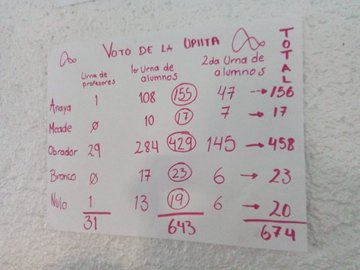 VOTO DE LA UPIITA
TOTAL
Urna de profesores
1er Urna de alumnos
2da Urna de alumnos
Anaya 1 108 155 47 → 156
Meade Ø 10 17 7 → 17
Obrador 29 284 429 145 → 458
Bronco Ø 17 23 6 → 23
Nulo 1 13 19 6 → 20
31 643 674